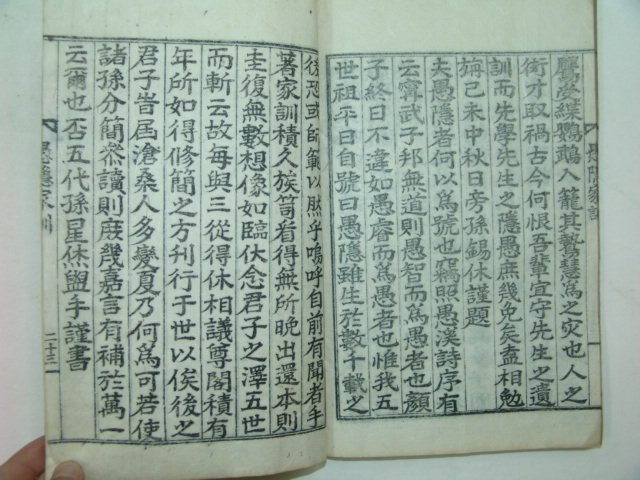 鷹受緤鸚鵡入籠其聰慧爲之灾也人之
衒才取禍古今何恨吾輩宜守先生之遺
訓而先學先生之隱愚庶幾免矣盍相勉
旃己未中秋日旁孫錫休謹題
夫愚隱者何以爲號也竊照愚溪詩序有
云甯武子邦無道則愚智而爲愚者也顔
子終日不違如愚睿而爲愚者也惟我五
世祖平日自號曰愚隱雖生於數千載之
後恐或師範以然乎嗚呼自前有聞者手
著家訓積久族笥看得無所晚出還本則
圭復無數想像如臨伏念君子之澤五世
而斬云故每與三從得休相議尊閣積有
年所如得修簡之方刊行于世以俟後之
君子昔屆滄桑人多變夏乃何爲可若使
諸孫分簡叅讀則庶幾嘉言有補於萬一
云爾也否五代孫星休盥手謹書
愚隱家訓
二十三